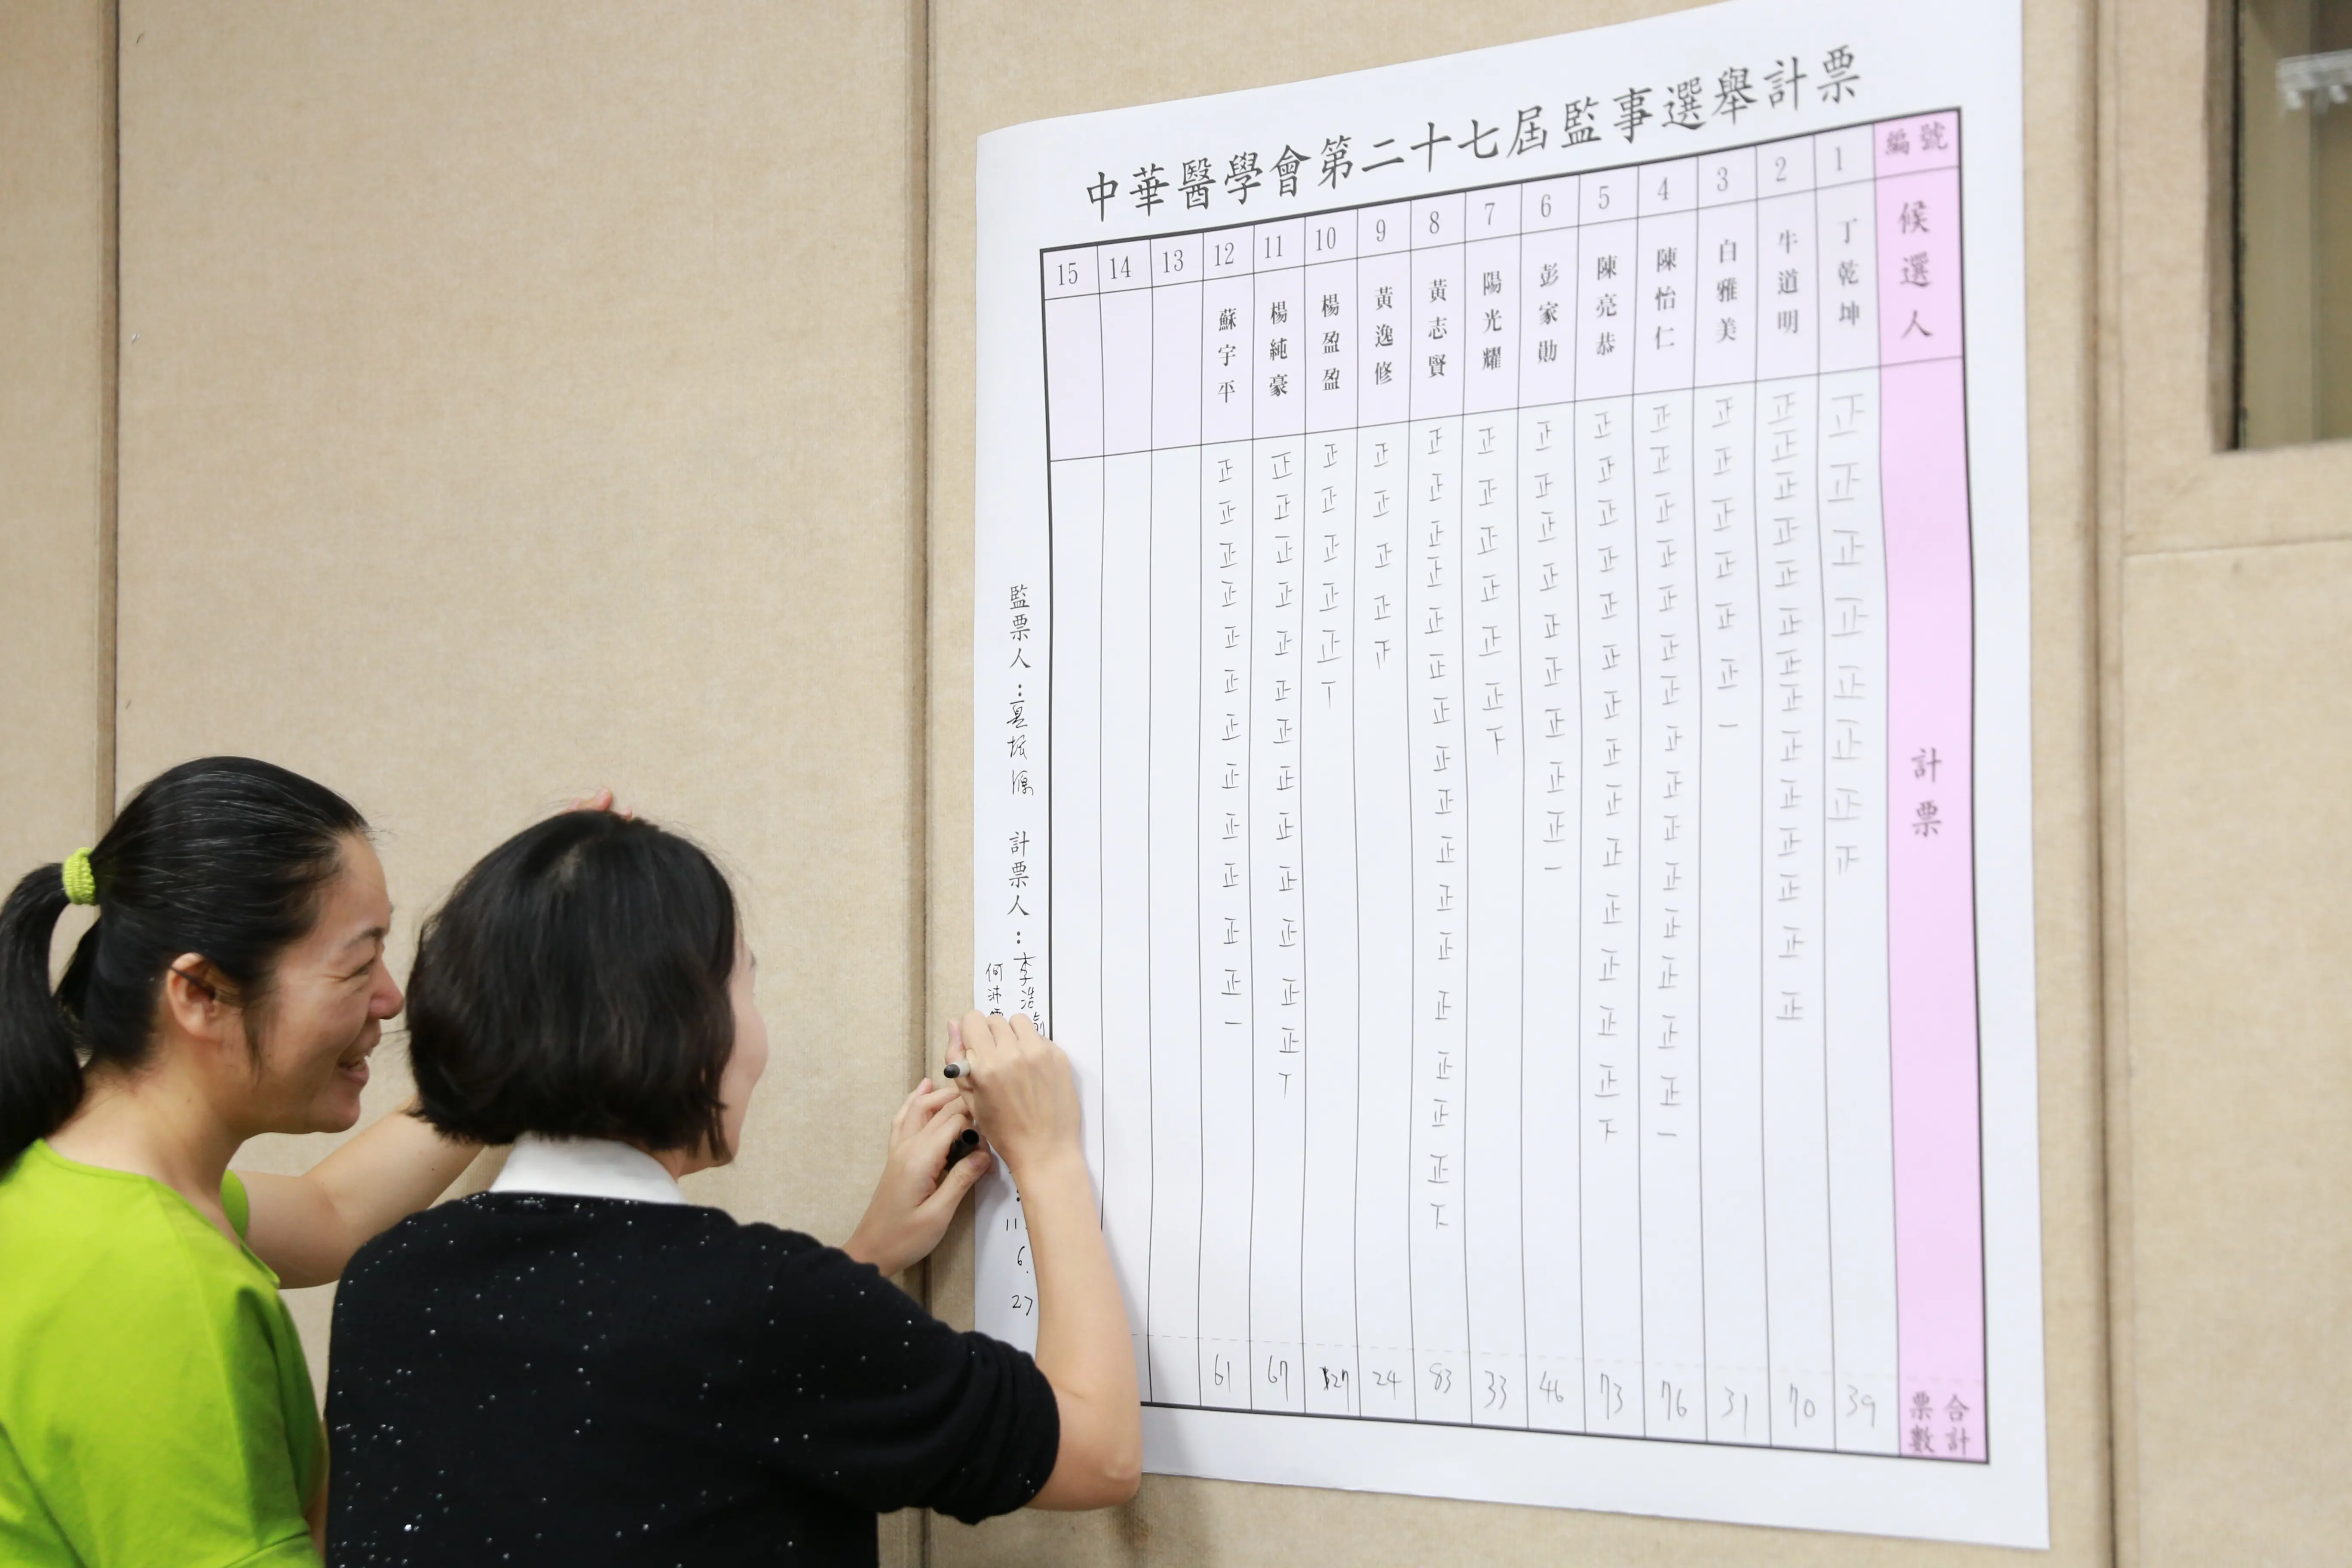 中華醫學會第二十七屆監事選舉計票
編號 1 2 3 4 5 6 7 8 9 10 11 12 13 14 15
候選人
丁乾坤
牛道明
白雅美
陳怡仁
陳亮恭
彭家勛
陽光耀
黃志賢
黃逸修
楊盈盈
楊純豪
蘇宇平
計票
正正正正正正正𤴓
正正正正正正正正正正正正正正
正正正正正正一
正正正正正正正正正正正正正正正一
正正正正正正正正正正正正正正下
正正正正正正正正正一
正正正正正正下
正正正正正正正正正正正正正正正正下
正正正正
正正正正正丅
正正正正正正正正正正正正正丅
正正正正正正正正正正正正一
合計票數 39 70 31 76 73 46 33 83 24 27 67 61
監票人：
計票人：李浩
何沛
6.
27